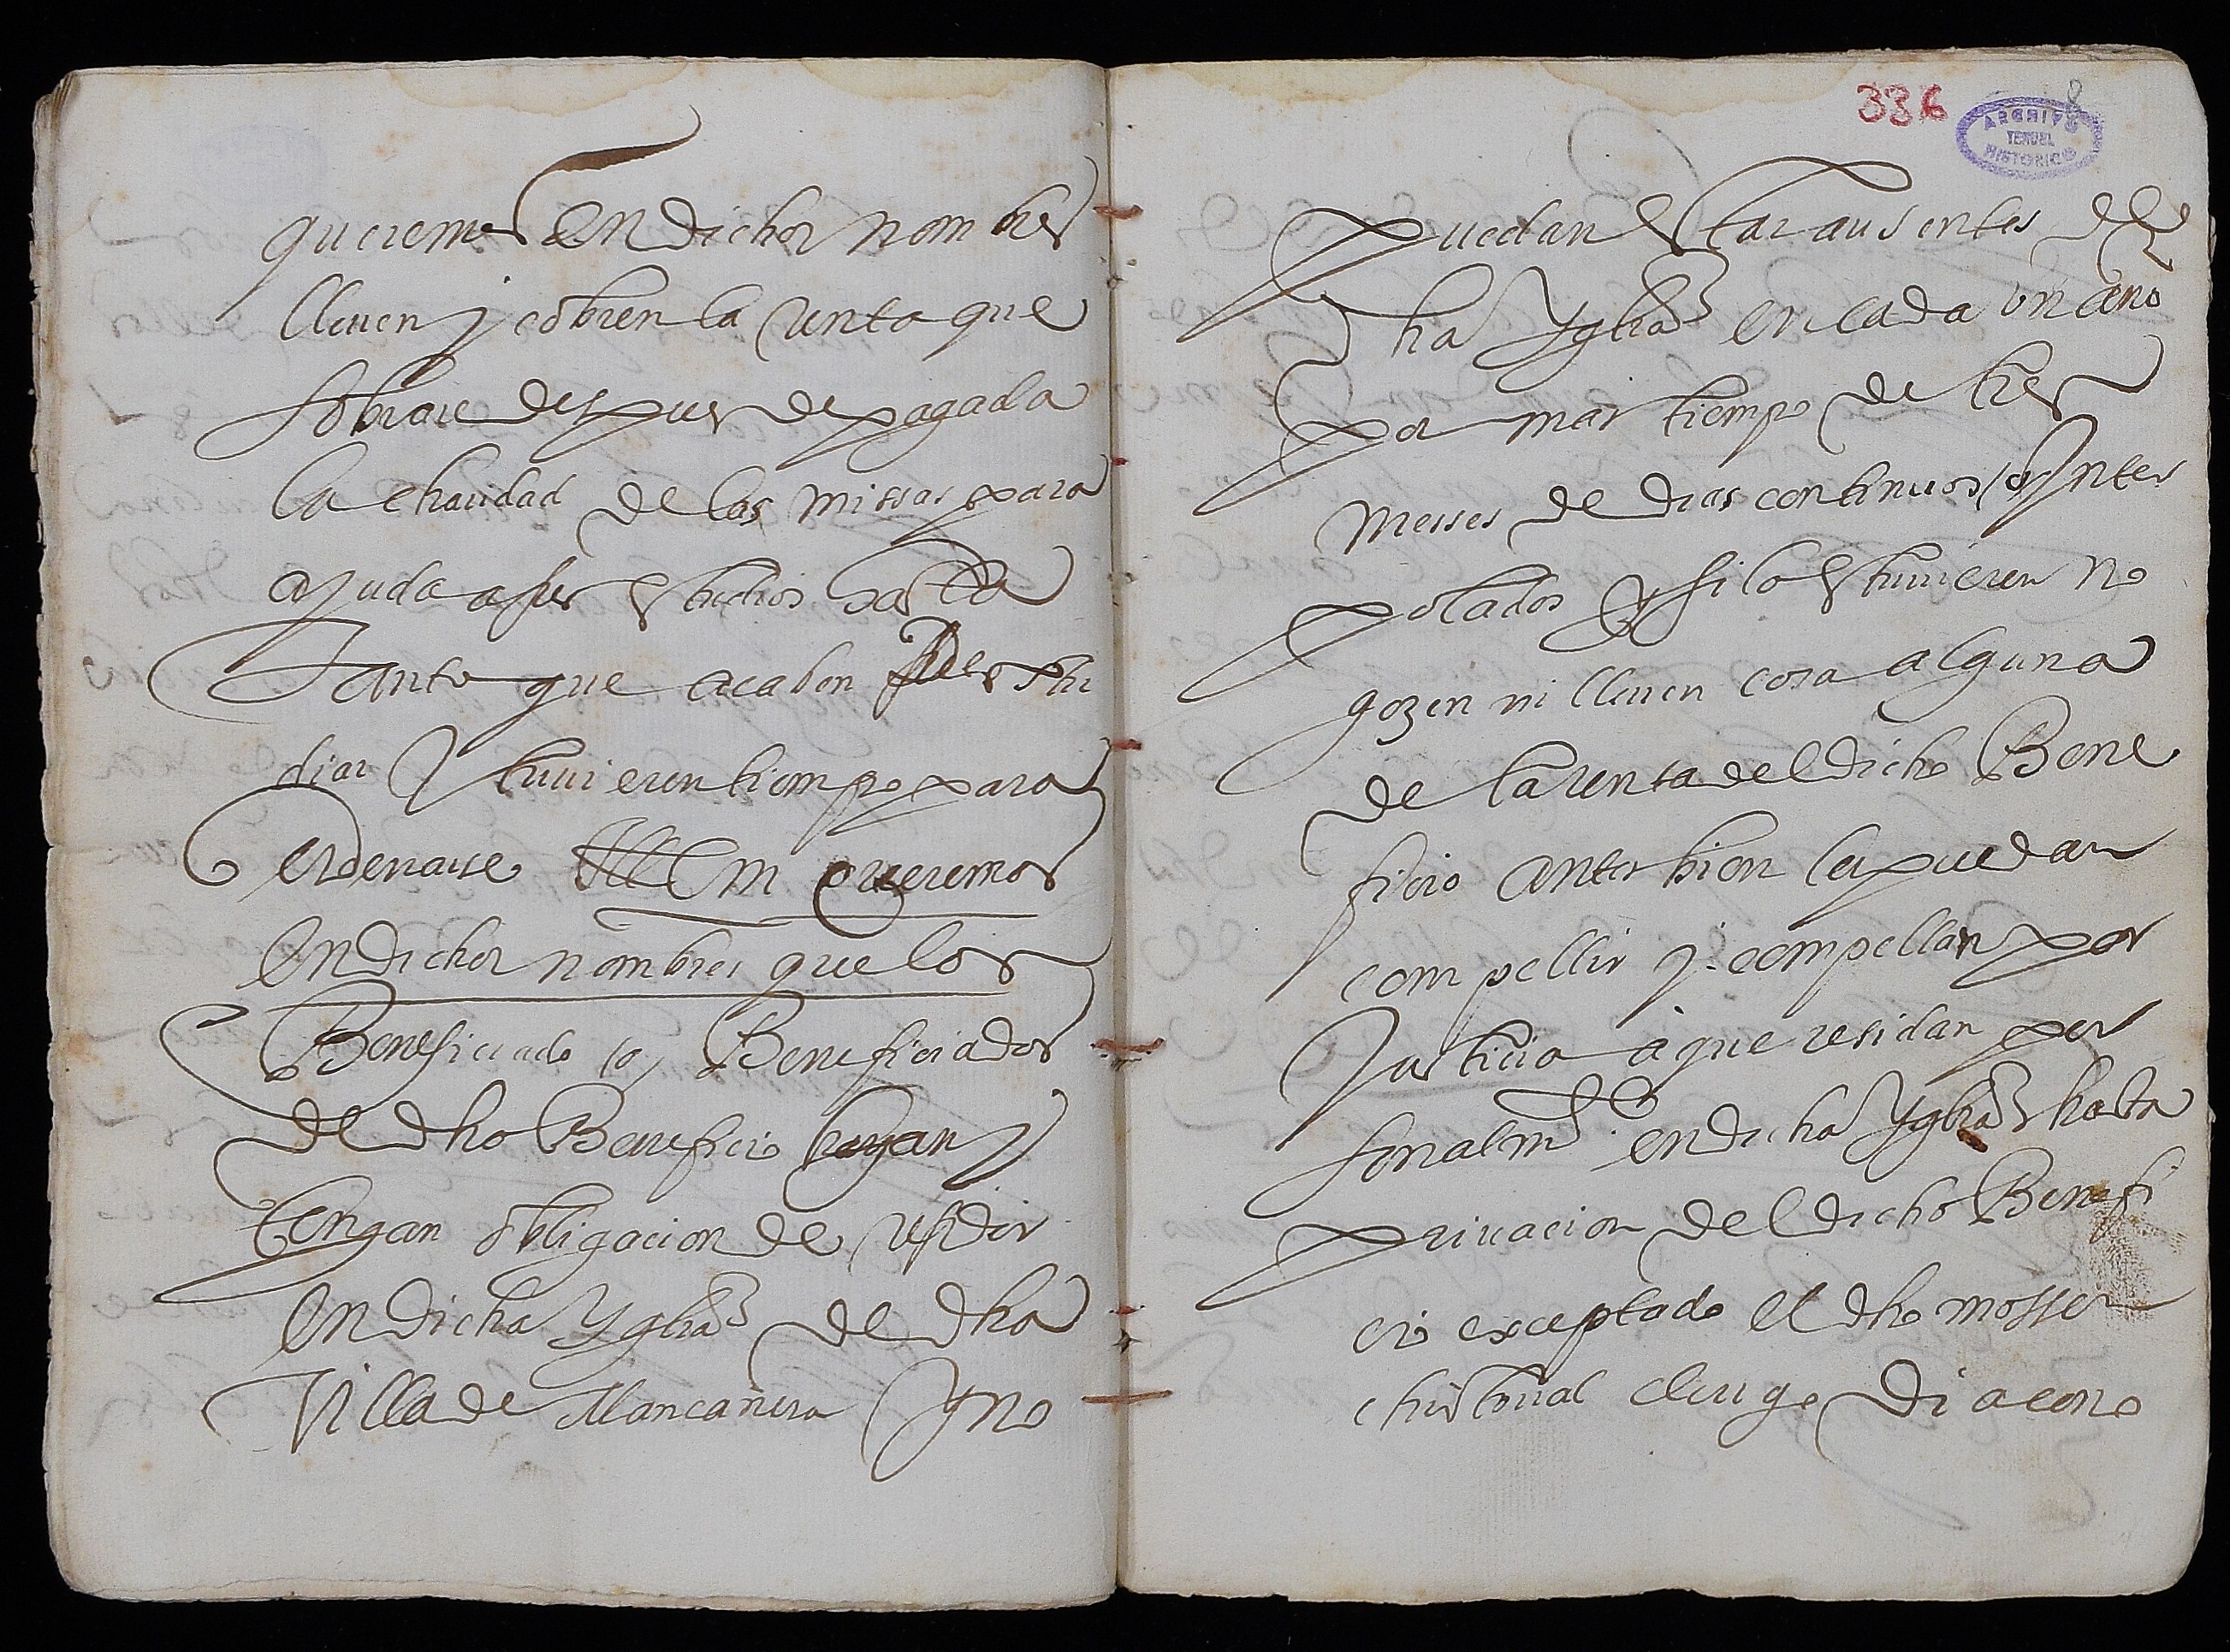 queremos en dichos nombres
lleuen y cobren la renta que
sobrare despues de pagada
la charidad de las missas para
ayuda a sus estudios hasta
tanto que acaben de estu
diar y tuuieren tiempo para
ordenarse Item queremos
en dichos nombres que los
Beneficiado (o) Beneficiados
del dho Beneficio hayan y
tengan obligacion de residir
en dicha Yglia de dha
Villa de Mancanera y no
336
8
ARCHIVO
TERUEL
HISTORICO
puedan estar ausentes de
dha Yglia en cada un año
por mas tiempo de tres
messes de dias continuos (o) Inter
polados y si lo estuuieren no
gozen ni lleuen cosa alguna
de la renta del dicho Bene
ficio antes bien les puedan
compellir y compellan por
Justicia à que residan per
sonalmte en dicha Yglia hasta
priuacion del dicho Benefi
cio exceptado el dho mossen
christoual clerigo Diacono